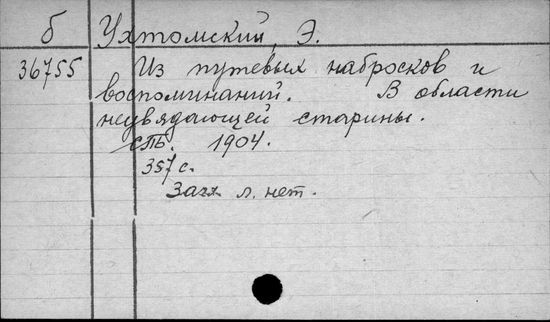 б Ухтомский, Э.
36755 Из путевых набросков и
воспоминаний. В области
неувядающей старины.
СПб. 1904.
357 с.
Загл. л. нет.